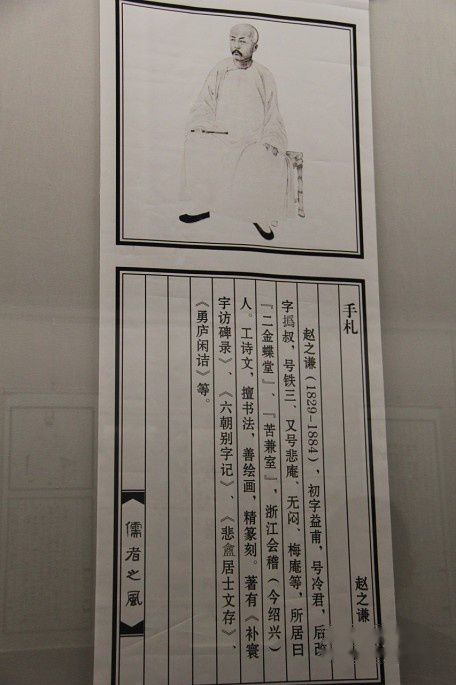 手札 赵之谦
赵之谦(1829-1884),初字益甫,号冷君,后改
字撝叔,号铁三、又号悲庵、无闷、梅庵等,所居曰
『二金蝶堂』、『苦兼室』,浙江会稽(今绍兴)
人。工诗文,擅书法,善绘画,精篆刻。著有《补寰
宇访碑录》、《六朝别字记》、《悲盦居士文存》、
《勇庐闲诘》等。
儒者之风